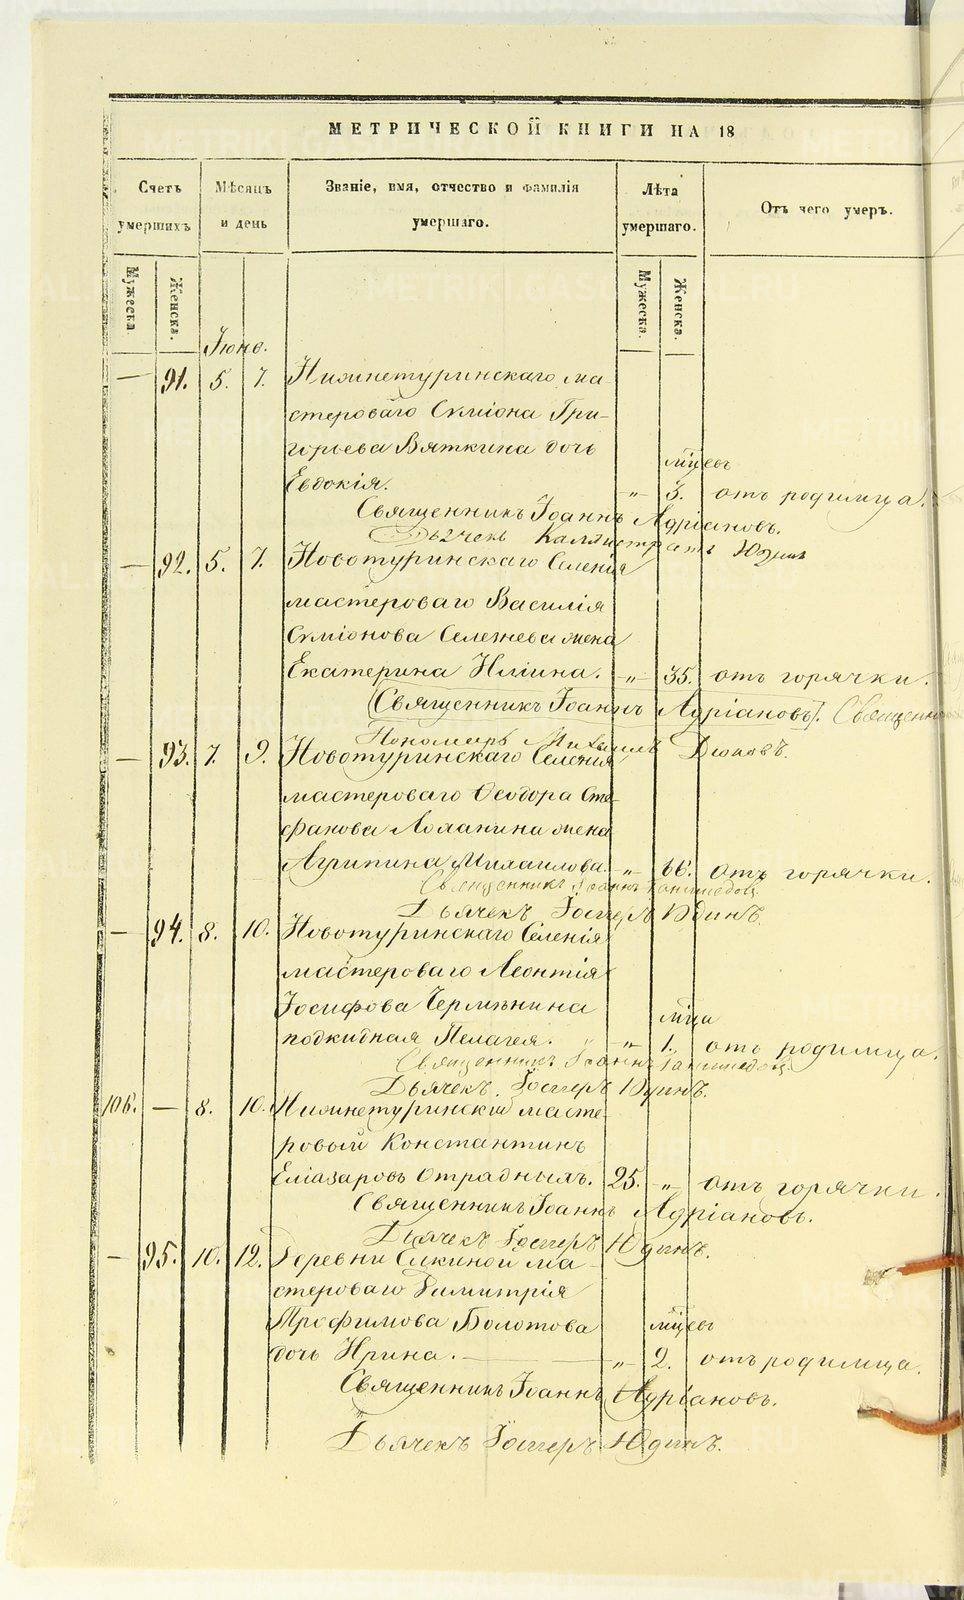 МЕТРИЧЕСКОЙ КНИГИ НА 18
Счетъ умершихъ
Мѣсяцъ и день
Званіе, имя, отчество и фамилія умершаго.
Лѣта умершаго.
Отъ чего умеръ.
Мужеска. Женска.
Мужеска. Женска.
Іюнь.
— 91. 5. 7. Нижнетуринскаго ма-
стероваго Симіона Гри-
горьева Вяткина дочь
мѣсцевъ
Евдокія. „ 3. отъ родимца.
Священникъ Іоаннъ Адріановъ.
Дьячекъ Каллистратъ Юдинъ
— 92. 5. 7. Новотуринскаго Селенія
мастероваго Василія
Симіонова Сележева жена
Екатерина Иліина. „ 35. отъ горячки.
Священникъ Іоаннъ Адріановъ.
Пономарь Михаилъ
— 93. 7. 9. Новотуринскаго Селенія
мастероваго Ѳеодора Сте-
фанова Лоханина жена
Агрипина Михаилова. „ 66. отъ горячки.
Священникъ Іоаннъ
Дьячекъ Юдинъ.
— 94. 8. 10. Новотуринскаго Селенія
мастероваго Леонтія
Іосифова Чермянина
мѣца
подкидная Пелагея. „ 1. отъ родимца.
Священникъ Іоаннъ
Дьячекъ Юдинъ.
106. — 8. 10. Нижнетуринскій масте-
ровый Константинъ
Еліазаровъ Отрадныхъ. 25. „ отъ горячки.
Священникъ Іоаннъ Адріановъ.
Дьячекъ Юдинъ.
— 95. 10. 12. Деревни Елкиной ма-
стероваго Димитрія
Трофимова Болотова
мѣсцевъ
дочь Ирина. — „ 2. отъ родимца.
Священникъ Іоаннъ Адріановъ.
Дьячекъ Юдинъ.